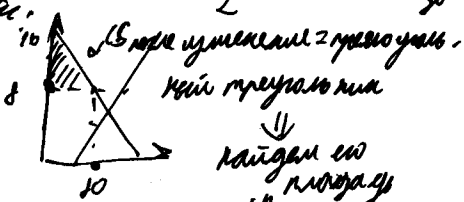 16
CS после изменения = прямоуголь-
8
ный треугольник
⇓
найдем его
10
площадь